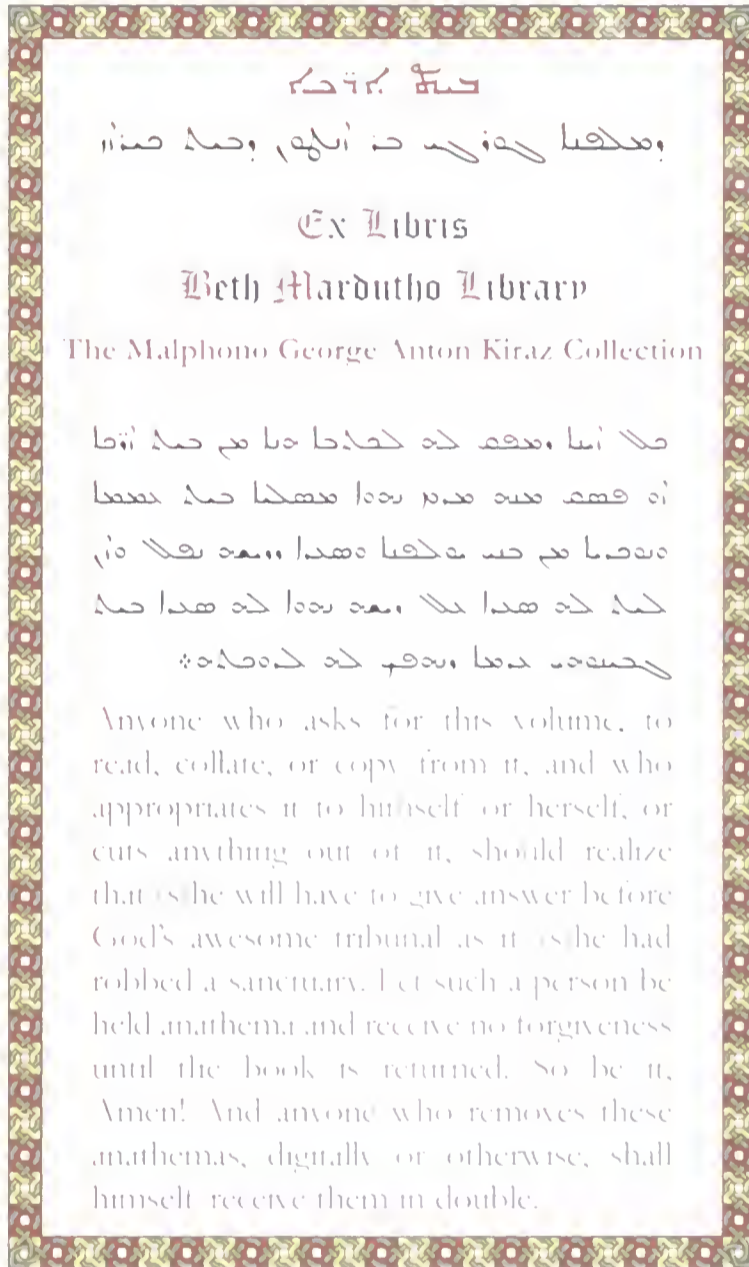 ܒܝܬ ܐܪ̈ܟܐ
ܕܡܠܦܢܐ ܓܘܪܓܝ ܒܪ ܐܢܛܘܢ ܕܒܝܬ ܟܝܪܐܙ
Ex Libris
Beth Mardutho Library
The Malphono George Anton Kiraz Collection
ܟܠ ܐܝܢܐ ܕܡܦܩ ܠܗ ܠܟܬܒܐ ܗܢܐ ܡܢ ܒܝܬ ܐܪ̈ܟܐ
ܐܘ ܦܣܩ ܡܢܗ ܡܕܡ ܢܗܘܐ ܡܣܠܝܐ ܒܝܬ ܥܡܡܐ
ܘܢܘܟܪܝܐ ܡܢ ܒܢܝ ܝܘܠܦܢܐ ܘܣܥܪܐ ܕܪܝܫܗ ܢܦܠ ܘܐܢ
ܠܝܬ ܠܗ ܣܥܪܐ ܥܠ ܪܝܫܗ ܢܗܘܐ ܠܗ ܣܥܪܐ ܒܝܬ
ܓܒܝܢܘܗܝ ܥܕܡܐ ܕܢܗܦܟ ܠܗ ܠܕܘܟܬܗ܀
Anyone who asks for this volume, to
read, collate, or copy from it, and who
appropriates it to himself or herself, or
cuts anything out of it, should realize
that (s)he will have to give answer before
God's awesome tribunal as if (s)he had
robbed a sanctuary. Let such a person be
held anathema and receive no forgiveness
until the book is returned. So be it,
Amen! And anyone who removes these
anathemas, digitally or otherwise, shall
himself receive them in double.